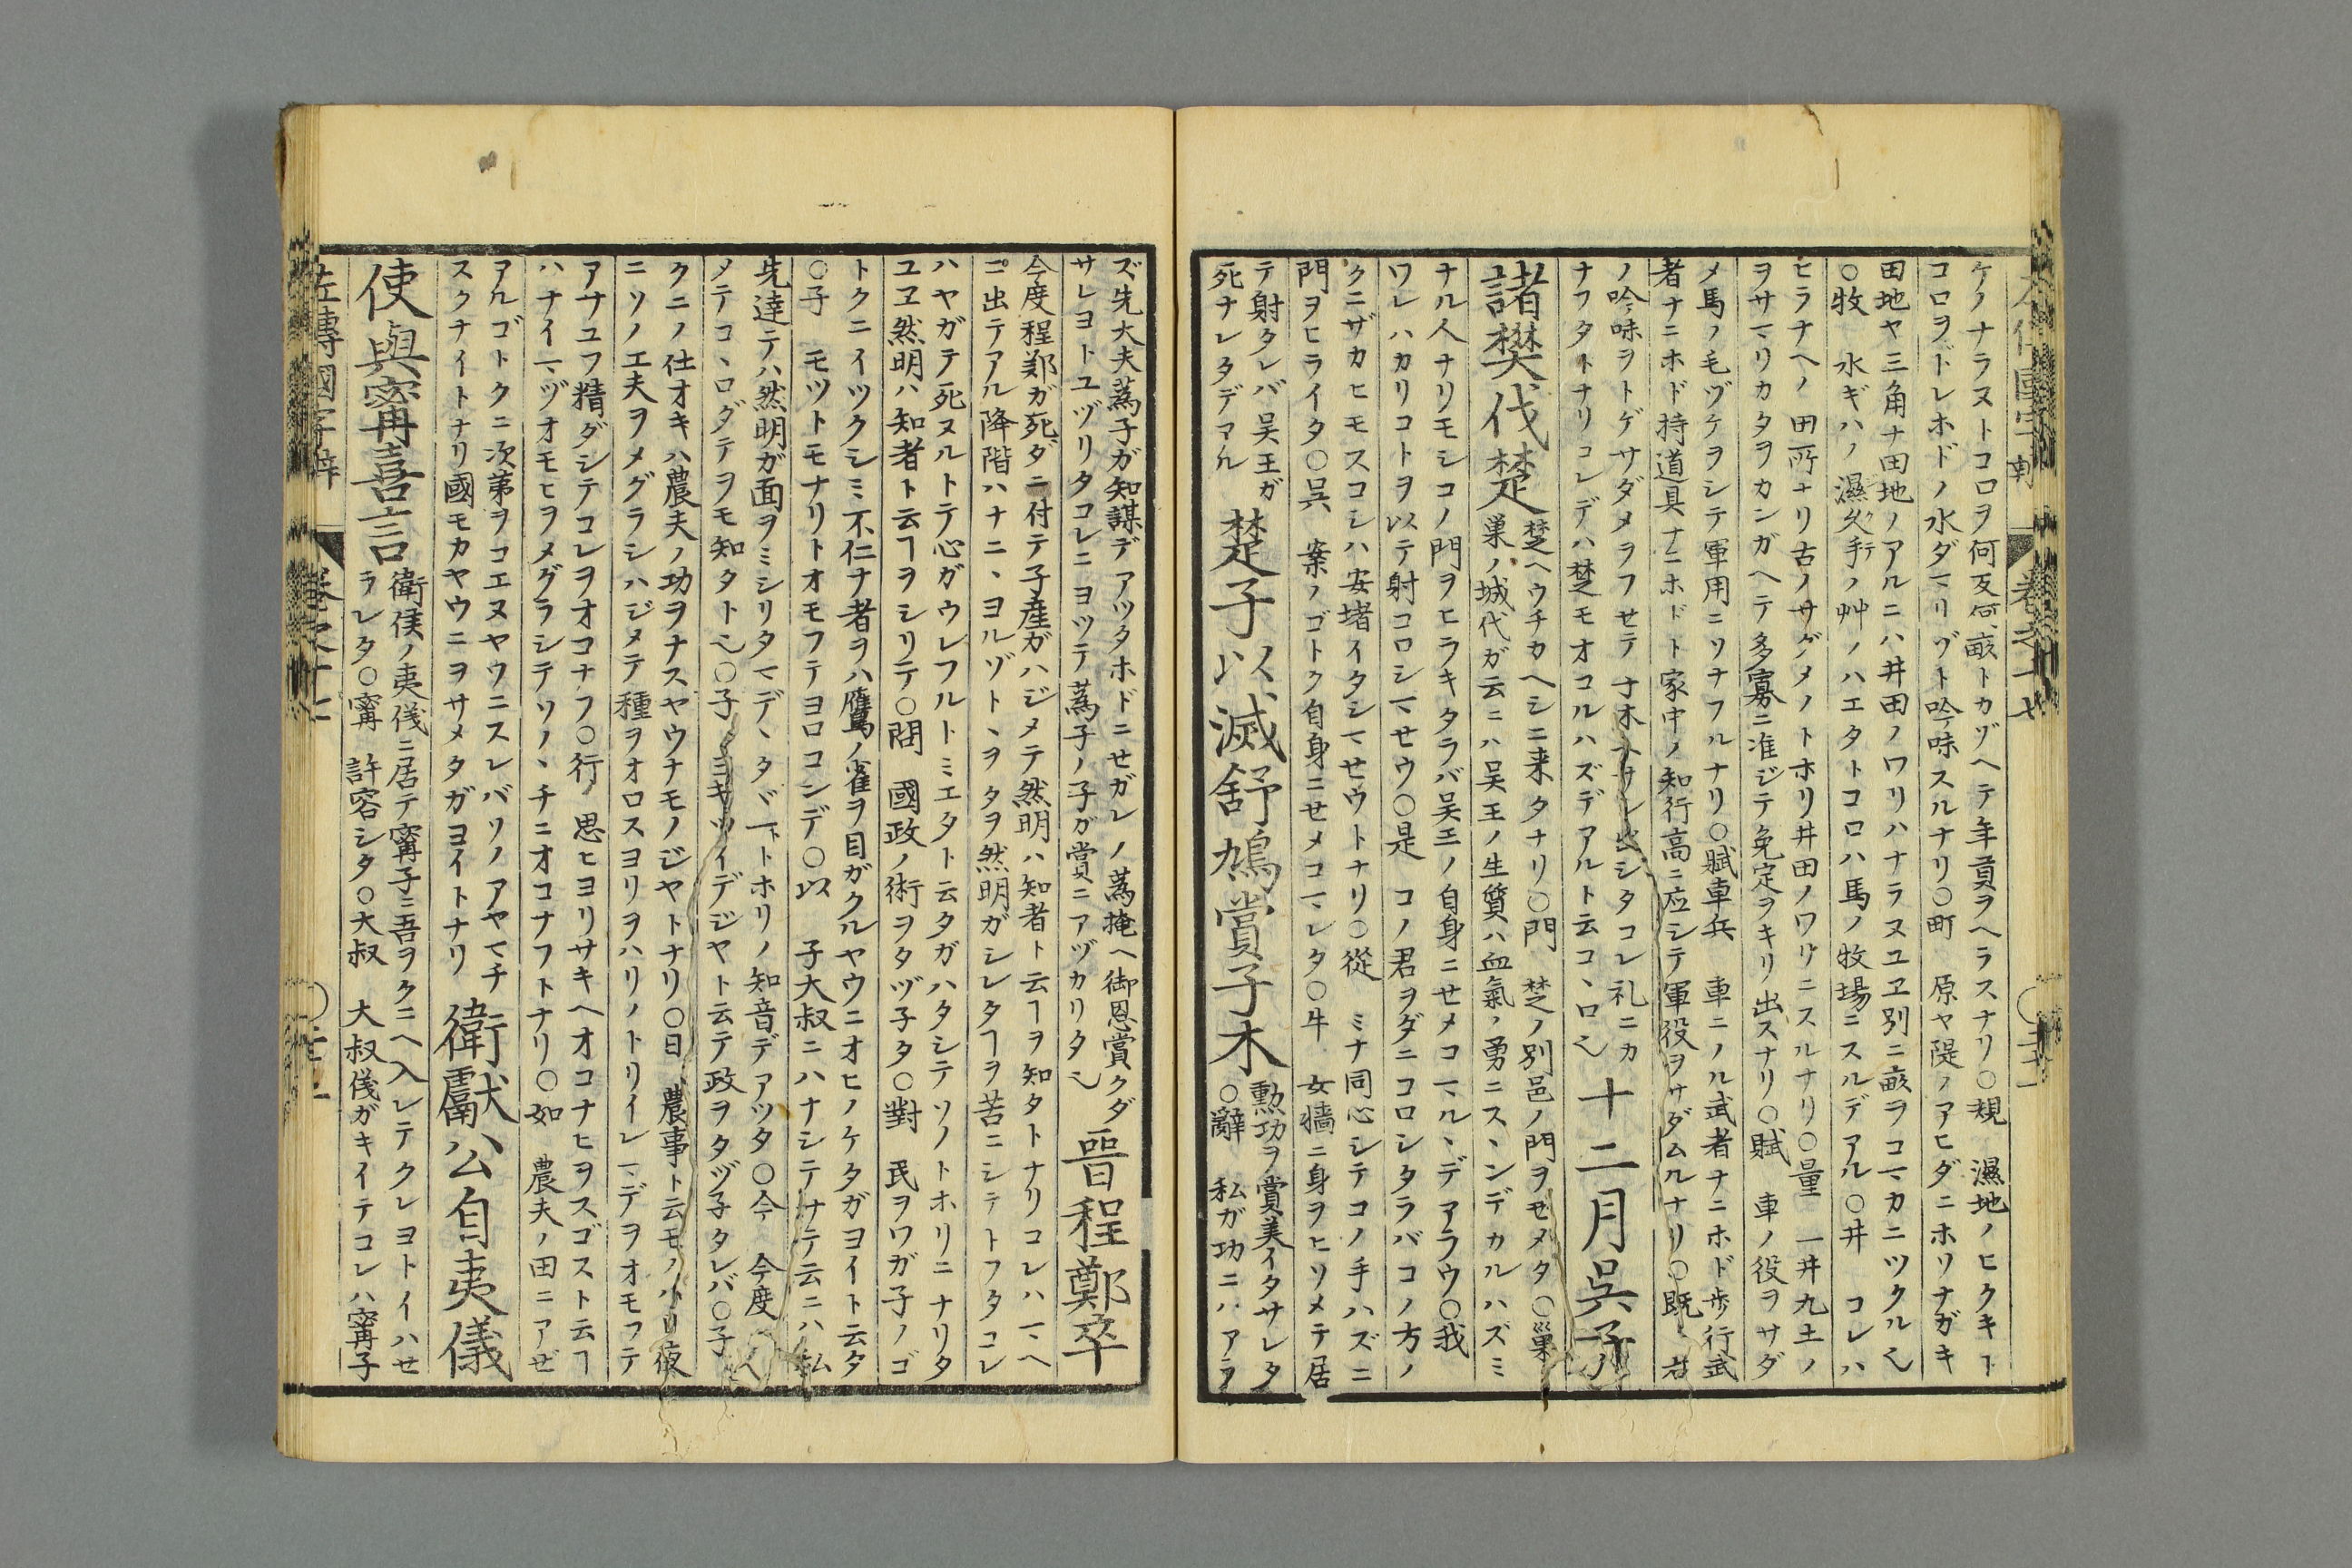 ケノナラヌトコロヲ何反何畝トカゾヘテ年貢ヲヘラスナリ○規 濕地ノヒクキト
コロヲドレホドノ水ダマリゾト吟味スルナリ○町 原ヤ隄ノアヒダニホソナガキ
田地ヤ三角ナ田地ノアルニハ井田ノワリハナラヌユヱ別ニ畝ヲコマカニツクル也
○牧 水ギハノ濕久手ノ艸ノハエタトコロハ馬ノ牧場ニスルデアル○井 コレハ
ヒラチヘノ田所ナリ古ノサダメノトホリ井田ノワリニスルナリ○量 一井九土ノ
ヲサマリカタヲカンガヘテ多寡ニ准ジテ免定ヲキリ出スナリ○賦 車ノ役ヲサダ
メ馬ノ毛ヅケヲシテ軍用ニソナフルナリ○賦車兵 車ニノル武者ナニホド歩行武
者ナニホド持道具ナニホドト家中ノ知行高ニ應シテ軍役ヲサダムルナリ○既 右
ノ吟味ヲトゲサダメヲフせテ子木ヘサシ出シタコレ礼ニカ
ナフタトナリコレデハ楚モオコルハズデアルト云コヽロ也
十二月吳子
諸樊伐楚
楚ヘウチカヘシニ来タナリ○門 楚ノ別邑ノ門ヲせメタ○巢
巢ノ城代ガ云ニハ吴王ノ生質ハ血氣ノ勇ニスヽンデカルハズミ
ナル人ナリモシコノ門ヲヒラキタラバ吴王ノ自身ニせメコマルヽデアラウ○我
ワレハカリコトヲ以テ射コロシマせウ○是 コノ君ヲダニコロシタラバコノ方ノ
クニザカヒモスコシハ安堵イタシマせウトナリ○從 ミナ同心シテコノ手ハズニ
門ヲヒライタ○吳 案ノゴトク自身ニせメコマレタ○牛 女牆ニ身ヲヒソメテ居
テ射タレバ吴王ガ
死ナレタデアル
楚子以滅舒鳩賞子木
勲功ヲ賞美イタサレタ
○辭 私ガ功ニハアラ
ズ先大夫蒍子ガ知謀デアツタホドニせガレノ蒍掩ヘ御恩賞クダ
サレヨトユヅリタコレニヨツテ蒍子ノ子ガ賞ニアヅカリタ也
晉程鄭卒
今度程鄭ガ死ダニ付テ子產ガハジメテ然明ハ知者ト云ヿヲ知タトナリコレハマヘ
ニ出テアル降階ハナニヽヨルゾトヽヲタヲ然明ガシレタヿヲ苦ニシテトフタコレ
ハヤガテ死ヌルトテ心ガウレフルトミエタト云タガハタシテソノトホリニナリタ
ユヱ然明ハ知者ト云ヿヲシリテ○問 國政ノ術ヲタヅ子タ○對 民ヲワガ子ノゴ
トクニイツクシミ不仁ナ者ヲハ鷹ノ雀ヲ目ガクルヤウニオヒノケタガヨイト云タ
○子 モツトモナリトオモフテヨロコンデ○以 子大叔ニハナシテナテ云ニハ私
先達テハ然明ガ面ヲミシリタマデヽタヾ一トホリノ知音デアツタ○今 今度ハ
メテコヽロダテヲモ知タト也○子 ヨキツイデジヤト云テ政ヲタヅ子タレバ○子
クニノ仕オキハ農夫ノ功ヲナスヤウナモノジヤトナリ○日 農事ト云モノハ日夜
ニソノエ夫ヲメグラシハジメテ種ヲオロスヨリヲハリノトリイレマデヲオモフテ
アサユフ精ダシテコレヲオコナフ○行 思ヒヨリサキヘオコナヒヲスゴスト云ヿ
ハナイマヅオモヒヲメグラシテソノヽチニオコナフトナリ○如 農夫ノ田ニアぜ
ヲアルゴトクニ次第ヲコエヌヤウニスレバソノアヤマチ
スクナイトナリ國モカヤウニヲサメタガヨイトナリ
衛獻公自夷儀
使與甯喜言
衛侯ノ夷儀ニ居テ甯子ニ吾ヲクニヘ入レテクレヨトイハせ
ラレタ○甯 許容シタ○大叔 大叔儀ガキイテコレハ甯子
左傳國字辯